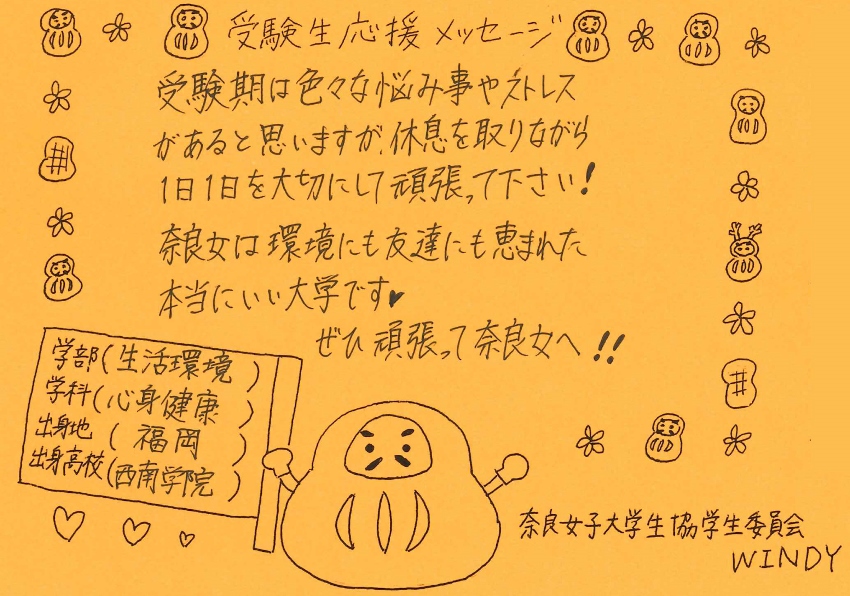 受験生応援メッセージ
受験期は色々な悩み事やストレス
があると思いますが、休息を取りながら
1日1日を大切にして頑張って下さい!
奈良女は環境にも友達にも恵まれた
本当にいい大学です♥
ぜひ頑張って奈良女へ!!
学部(生活環境)
学科(心身健康)
出身地(福岡)
出身高校(西南学院)
奈良女子大学生協学生委員会
WINDY